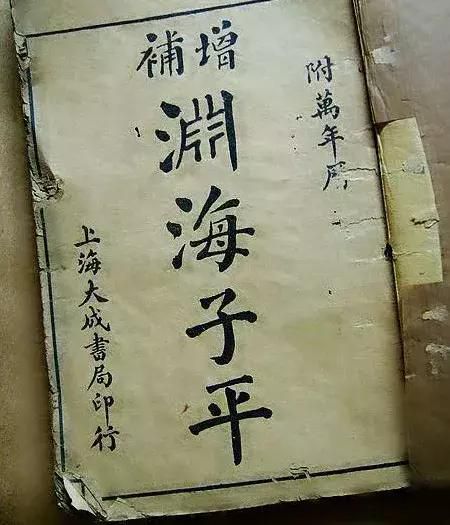 附萬年
增補
淵海子平
上海大成書局印行